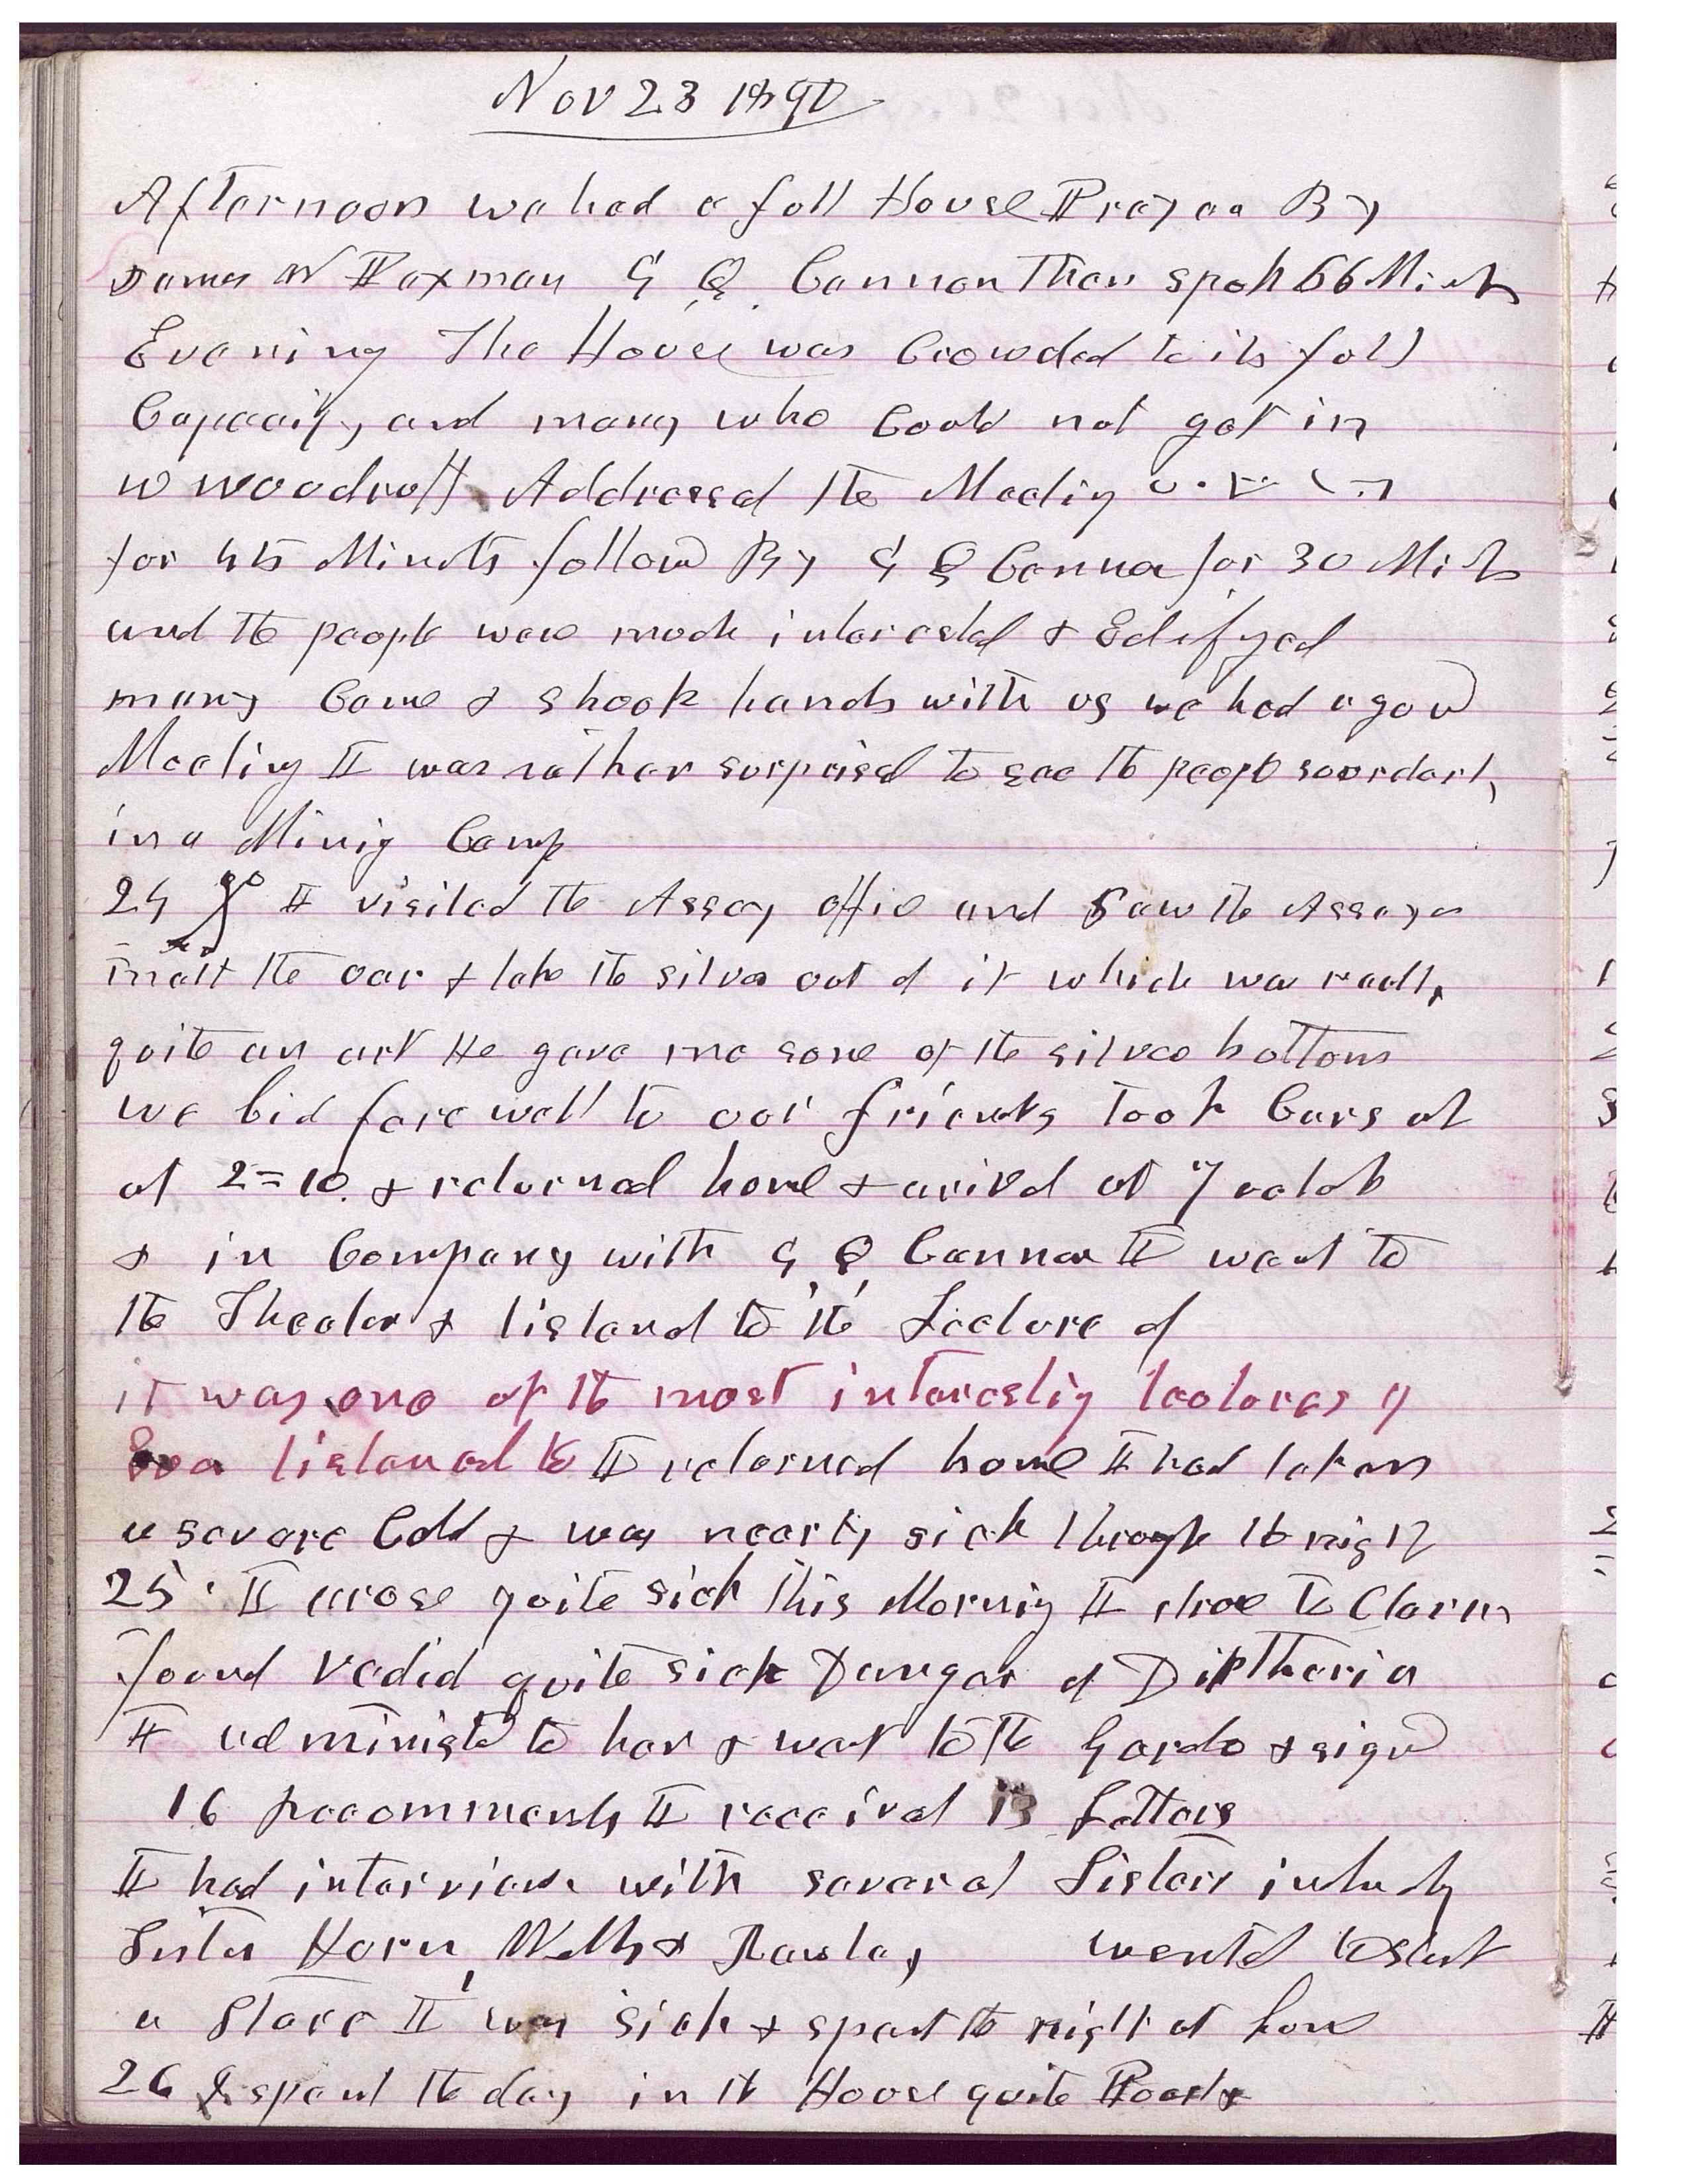 Nov 23 1890
Afternoon we had a full House Prayer By
James W Paxman G Q Cannon Then spok 66 Minets
Evening The House was Crowded to its full
Capacity and many who Could not get in
W Woodruff Addressed the Meeting
for 45 Minuts followd By G Q Cannon for 30 Mints
and the people were much interested & Edifyed
many Came & shook hands with us we had a good
Meeting I was rather surprised to see the people so ordarly
in a Mining Camp
24 I visited the Assay office and Saw the Assayer
melt the oar & take the silver out of it which was really
quite an art He gave me some of the silver bottons
we bid farewell to our friends took Cars at
at 2=10. & returned home & arived at 7 oclok
& in Company with G Q Cannon I went to
the Theater & listened to the Lecture of
it was one of the most interesting lectures I
Ever listened to I returned home I had taken
a severe Cold & was nearly sick through the night
25 I arose quite sick this Morning I drove to Claras
found quite sick Danger of Diptheria
I administed to her & went to the Gardo & signd
16 Recommends I received 13 Letters
I had interviews with several Sisters includig
Sister Horn, Wells & wanted to start
a Store I was sick & spent the night at home
26 I spent the day in the House quite Poorly